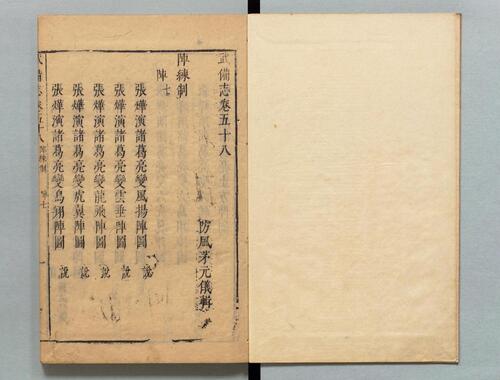 武備志卷五十八
防風茅元儀輯
陣練制
陣七
張燁演諸葛亮變風揚陣圖 說
張燁演諸葛亮變雲垂陣圖 說
張燁演諸葛亮變龍飛陣圖 說
張燁演諸葛亮變虎翼陣圖 說
張燁演諸葛亮變鳥翔陣圖 說
武備志卷五十八